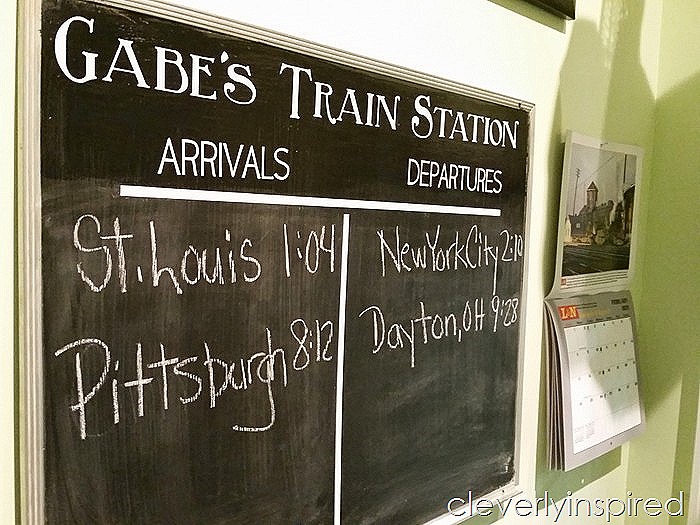 GABE'S TRAIN STATION
ARRIVALS
DEPARTURES
St. Louis 1:04
Pittsburgh 8:12
New York City 2:10
Dayton, OH 9:28
L&N
cleverlyinspired